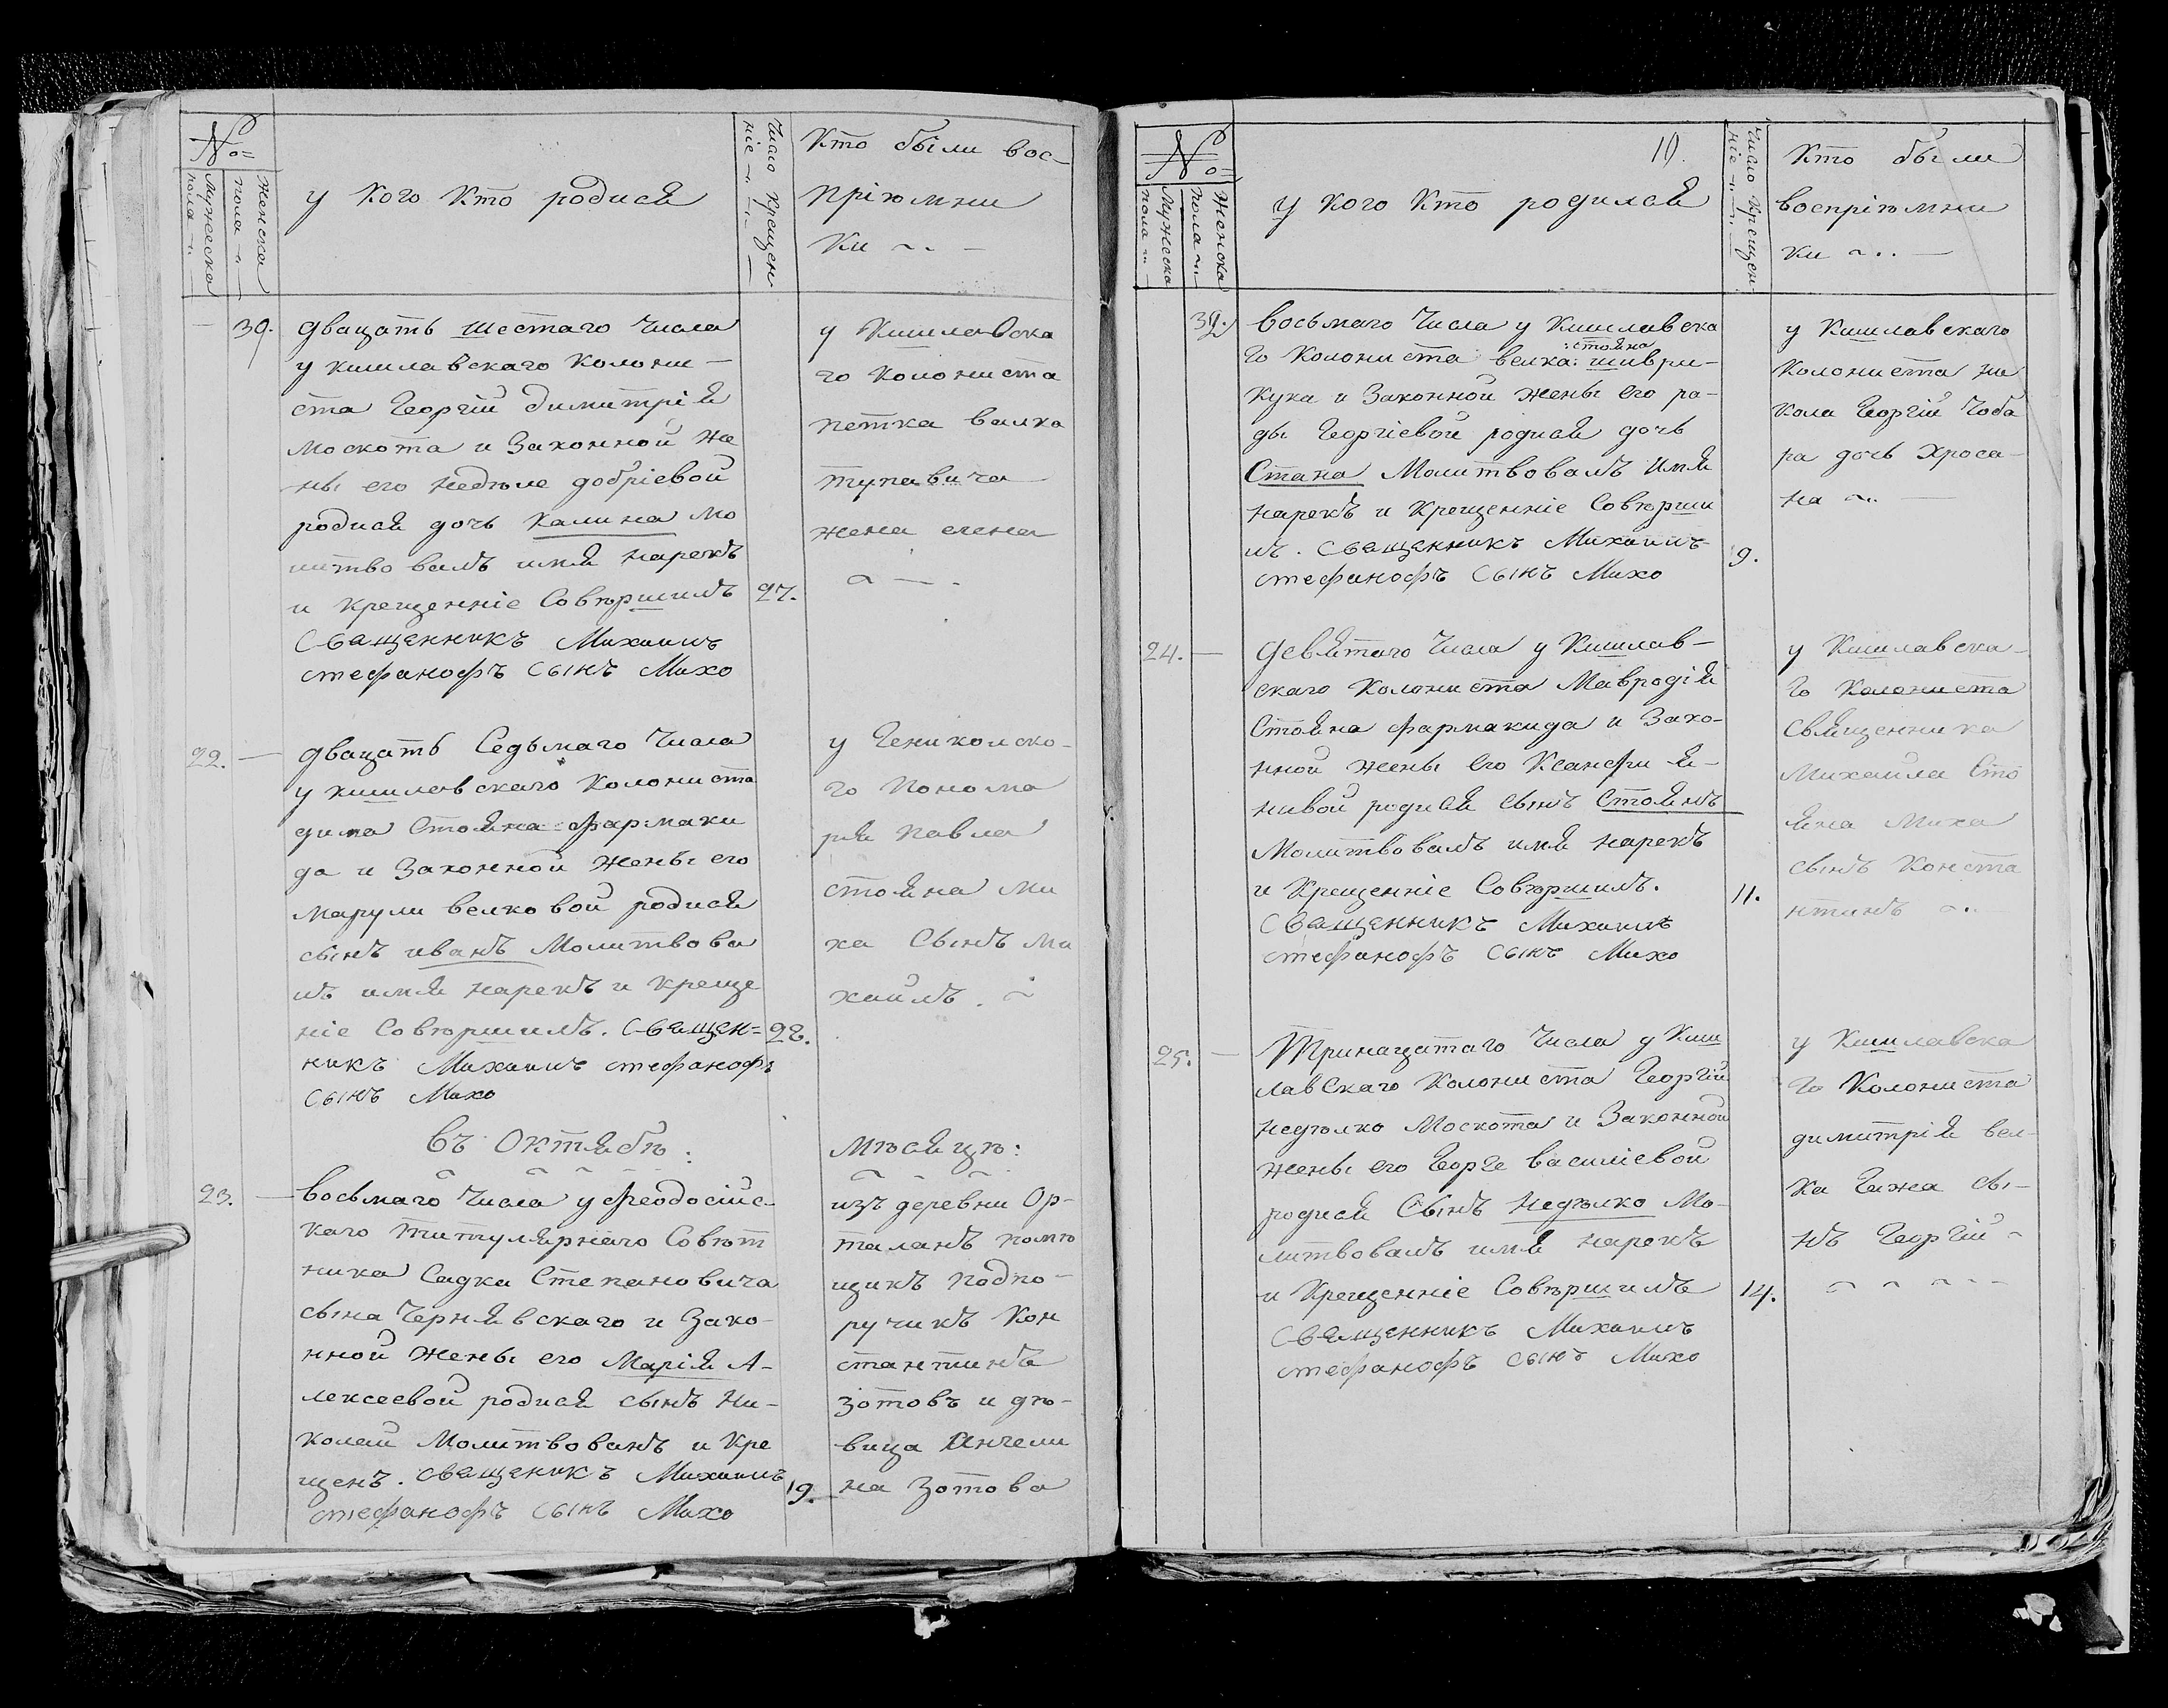 №
Мужеска пола
Женска пола
у кого кто родися
Число крещенніе
Кто были вос-
пріѣмни
ки
39.
двацать шестаго числа
у кишлавскаго колони-
ста Георгій димитрія
москота и законной же
ны его недѣле добріевой
родися дочь калина мо
литвовалъ имя нарекъ
и крещенніе совѣршилъ
священникъ Михаилъ
стефанофъ сынъ Михо
27.
у Кишлавска
го колониста
петка валка
тупавича
жена елена
22.
двацать седьмаго числа
у кишлавскаго колониста
дима стояна фармаки
да и законной жены его
марули велковой родися
сынъ иванъ молитвова
лъ имя нарекъ и креще
ніе совѣршилъ. священ=
никъ Михаилъ стефанофъ
сынъ Михо
28.
у Ченикомско-
го понома
ря павла
стояна ми
ха сынъ ми
хаилъ.
въ Октябѣ:
мѣсяцѣ:
23.
восьмаго числа у феодосійс-
каго титулярнаго совѣт
ника Садка Степановича
сына Чернявскаго и зако-
нной жены его Марія А-
лексеевой родися сынъ ни-
колай молитвованъ и кре
щенъ. священикъ Михаилъ
стефанофъ сынъ Михо
19.
изъ деревни Ор-
таланъ помѣ
щикъ подпо-
ручикъ Кон
стантинъ
зотовъ и дѣ-
вица Анчели
на зотова
19.
№
Мужеска пола
Женска пола
у кого кто родился
Число крещенніе
Кто были
воспріѣмни
ки
32.
восьмаго числа у Кишлавска
го колониста велка :стояна шиври-
кука и законной жены его ра-
ды Георгіевой родися дочь
Стана молитвовалъ имя
нарекъ и крещенніе совѣрши
лъ. священникъ Михаилъ
стефанофъ сынъ Михо
9.
у Кишлавскаго
колониста ни
кола Георгій чоба
ра дочь хроса-
на
24.
девятаго числа у Кишлав-
скаго колониста Мавродія
стояна фармакида и зако-
нной жены его Ксанфи я-
нивой родися сынъ Стоянъ
молитвовалъ имя нарекъ
и крещенніе совѣршилъ.
священникъ Михаилъ
стефанофъ сынъ Михо
11.
у Кишлавска-
го колониста
священника
Михаила сто
яна Миха
сынъ Конста
нтинъ
25.
Тринацатаго числа у Киш
лавскаго колониста Георгій
недѣлко Москота и законной
жены его Георге василіевой
родися сынъ Недѣлко мо-
литвовалъ имя нарекъ
и крещенніе совѣршилъ
священникъ Михаилъ
стефанофъ сынъ Михо
14.
у Кишлавска
го колониста
димитрія вел-
ка Гижа сы-
нъ Георгій